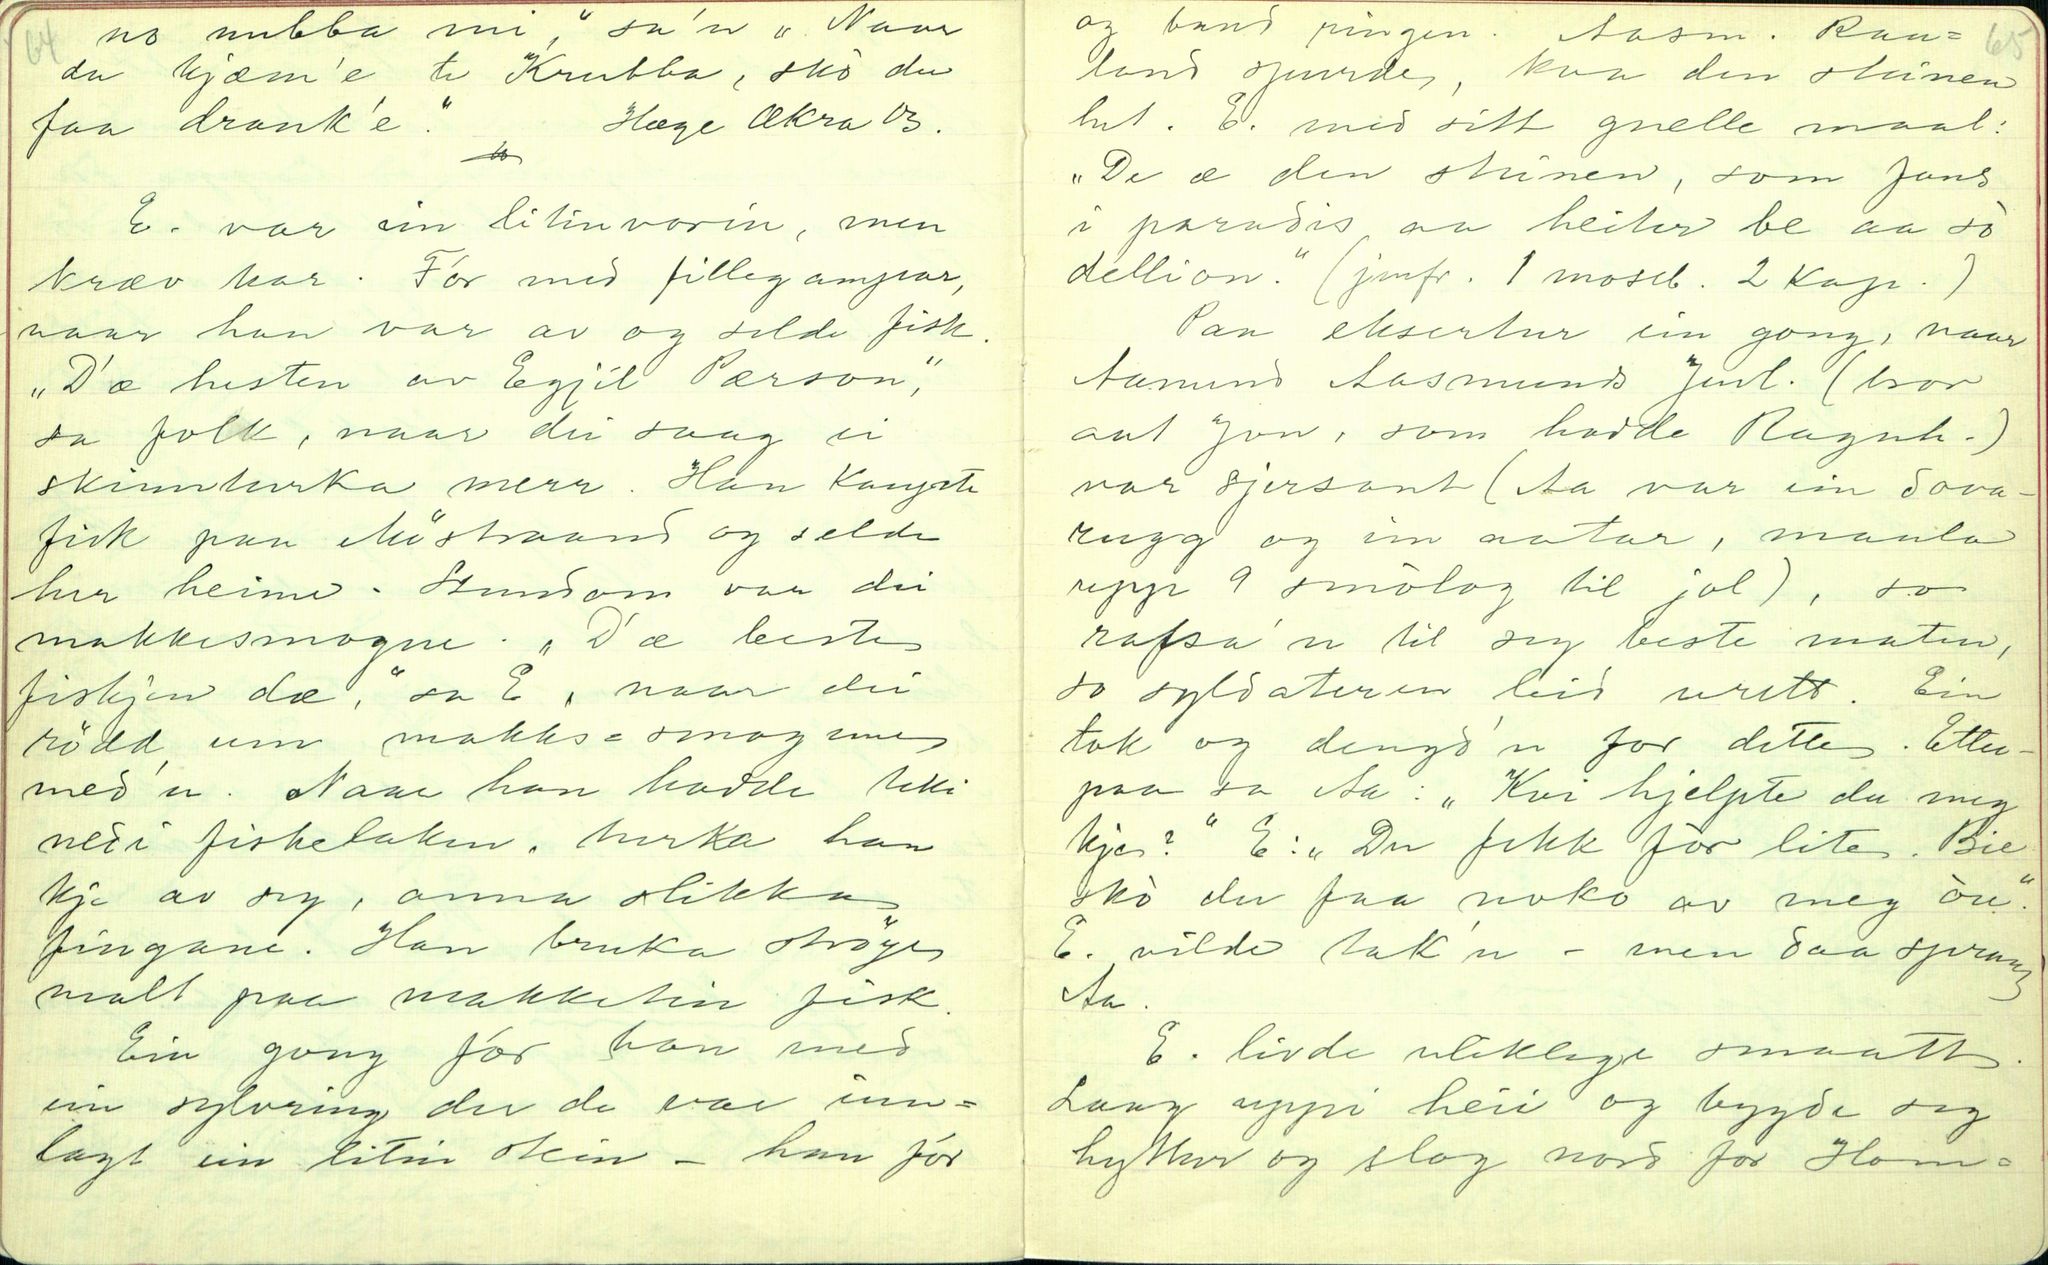 64
no nubba mi," sa'n "Naar
du kjæm'e te Krubba, skò du
faa drank'e." Hæge Økra 03.
E. var ein litinvorin, men
kræv kar. Fór med fillegampar,
naar han var av og selde fisk.
"D'æ hesten av Eggjil Pærson",
sa folk, naar dei saag ei
skinnturka merr. Han kaupte
fisk paa Möstraand og selde
her heime. Stundom var dei
makkesmogne. "D'æ beste
fiskjen dæ," sa E, naar dei
rödd um makks=smogne
med'n. Naar han hadde teki
nedi fiskelaken, turka han
kje av seg, anna slikka
fingane. Han bruka ströye
malt paa makketin fisk.
Ein gong fór han med
ein sylvring der de var inn=
lagt ein litin stein – han fór
65
og baud ringen. Aasm. Rau=
land spurde, kva den steinen
het. E. med sitt gnelle maal:
"De æ den steinen, som fans
i paradis aa heiter be aa sò
dellion." (jmfr. 1 moseb. 2 kap.)
Paa eksertur ein gong, naar
Aamund Aasmunds Jurl. (bror
aat Jon, som hadde Ragnh.)
var sjersant (Aa var ein dova-
rugg og ein aatar, maula
upp 9 smölog til jol), so
rafsa'n til seg beste maten,
so syldateren leid urett. Ein
tok og dengd'n for dette. Etter-
paa sa Aa: "Kvi hjelpte du meg
kje?" E: "Du fekk fòr lite. Bie
skò du faa noko av meg òu."
E. vilde tak'n – men daa sprang
Aa.
E. livde uleklege smaatt.
Laag uppi heii og bygde seg
hyttur og slog nord for Hom=